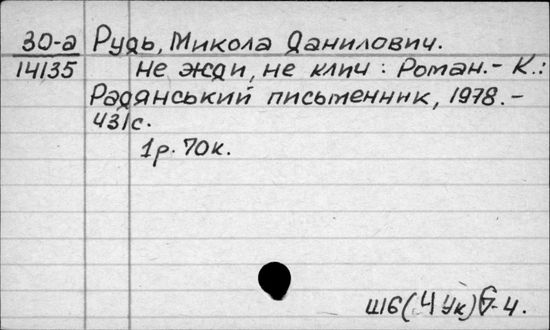 30-а Рудь, Микола Данилович.
14135 Не жди, не клич : Роман. - К.:
Радянський письменник, 1978. -
431с.
1р. 70к.
Ш6(4Ук)6-4.